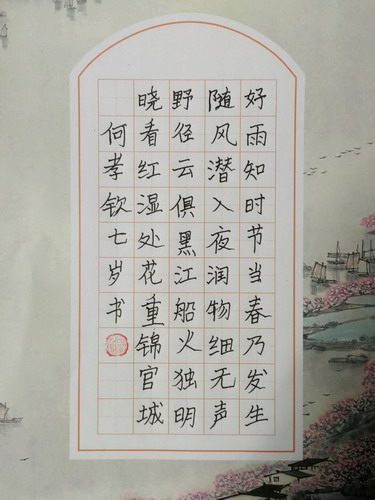 好雨知时节当春乃发生
随风潜入夜润物细无声
野径云俱黑江船火独明
晓看红湿处花重锦官城
何孝钦七岁书